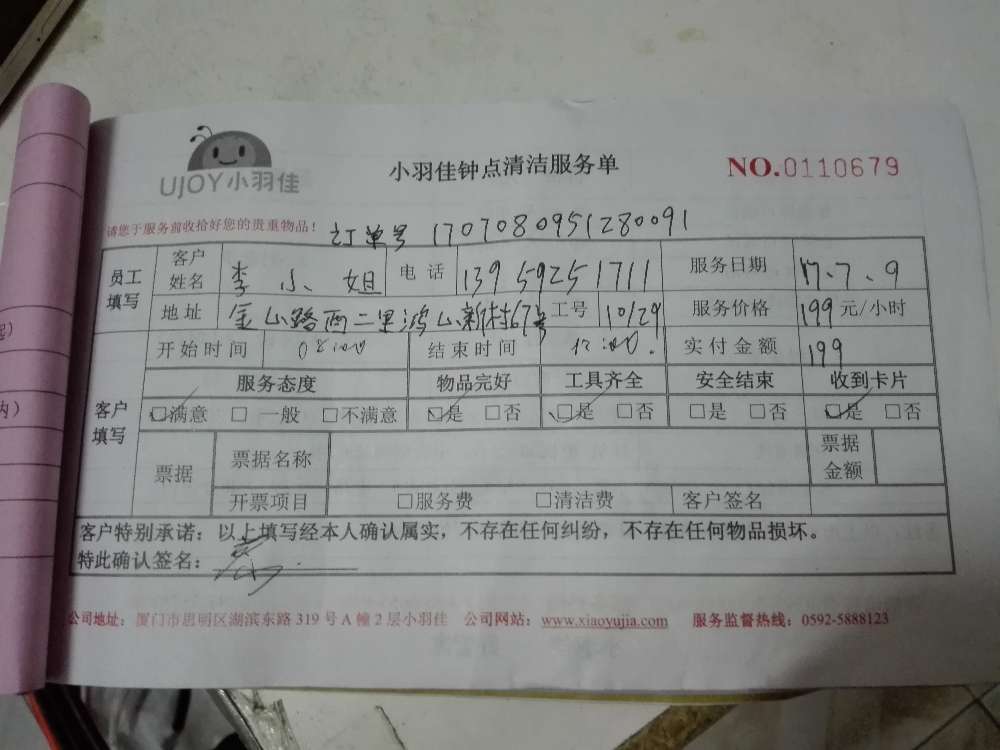 UJOY小羽佳
小羽佳钟点清洁服务单
NO.0110679
请您于服务前收拾好您的贵重物品！
订单号 1707080951280091
员工填写 客户姓名 李小姐 电话 13959251711 服务日期 17.7.9
地址 金山路西二里鸿山新村67号 工号 10129 服务价格 199元/小时
开始时间 08:00 结束时间 12:00. 实付金额 199
客户填写 服务态度 物品完好 工具齐全 安全结束 收到卡片
□满意 □一般 □不满意 □是 □否 □是 □否 □是 □否 □是 □否
票据 票据名称 票据金额
开票项目 □服务费 □清洁费 客户签名
客户特别承诺：以上填写经本人确认属实，不存在任何纠纷，不存在任何物品损坏。
特此确认签名：
公司地址：厦门市思明区湖滨东路319号A幢2层小羽佳 公司网站：www.xiaoyujia.com 服务监督热线：0592-5888123
内）